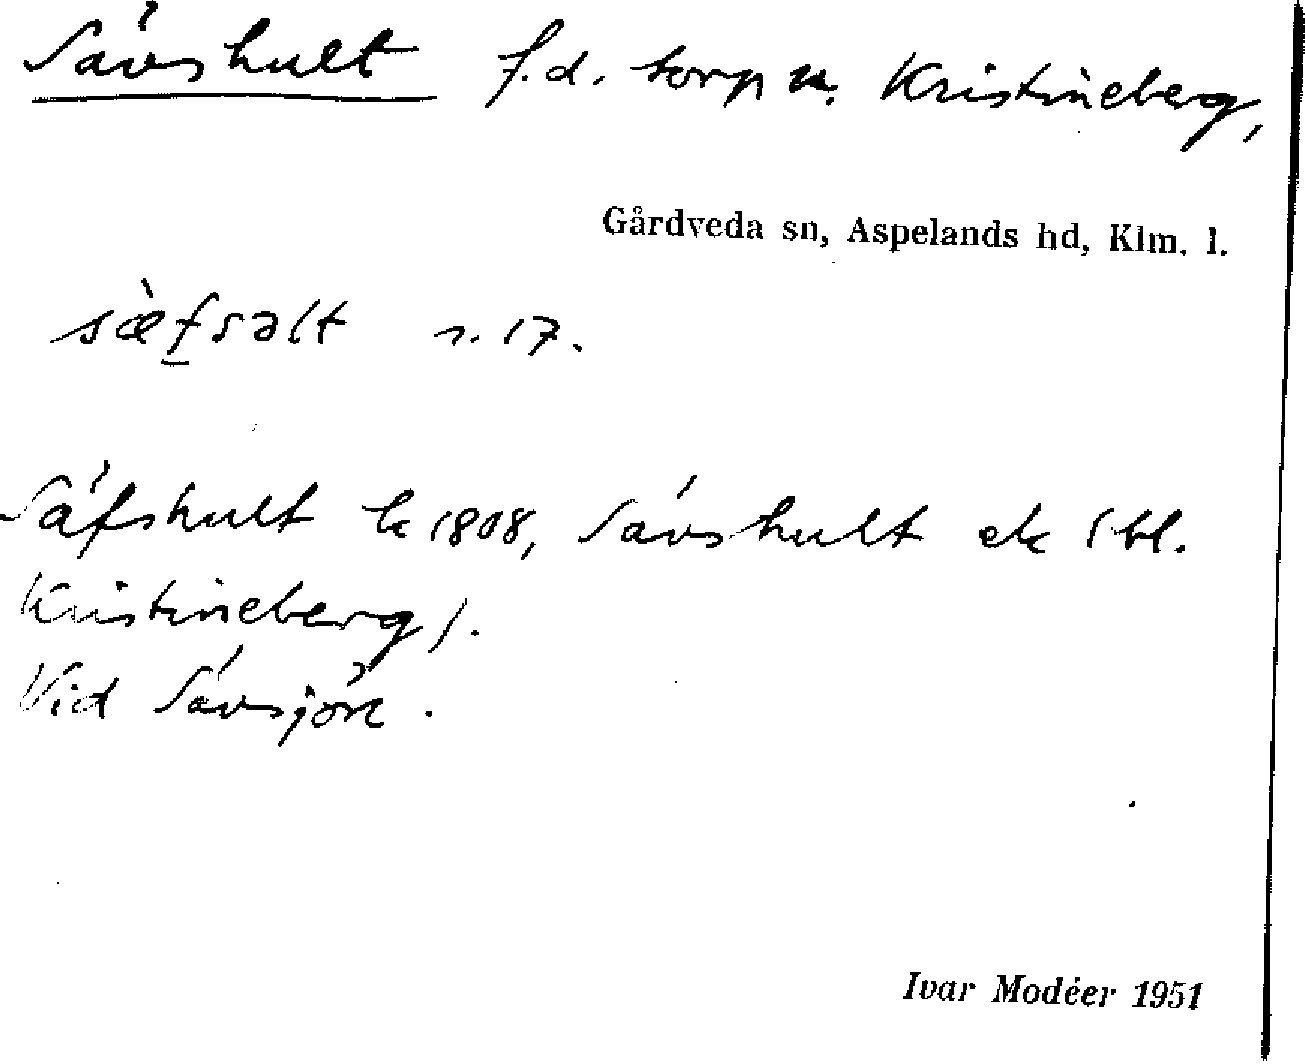 Sävshult f.d. torp u. Kristineberg,
Gårdveda sn, Aspelands hd, Klm. l.
sæ̀fsəlt s. 17.
Säfshult k 1808, Sävshult ek (bl.
Kristineberg).
Vid Sävsjön.
Ivar Modéer 1951